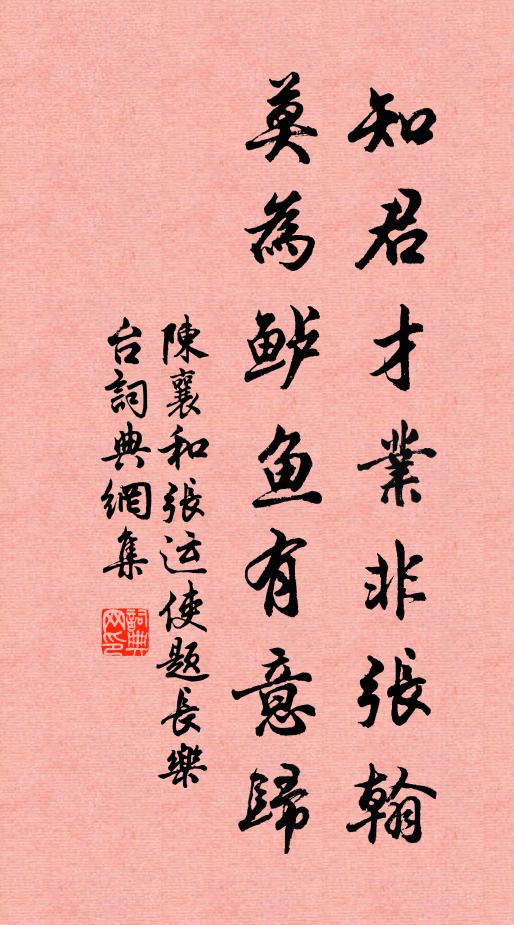 知君才業非張翰
莫為鲈鱼有意歸
陳襄和張运使題長樂
台詞典網集
詞典网印